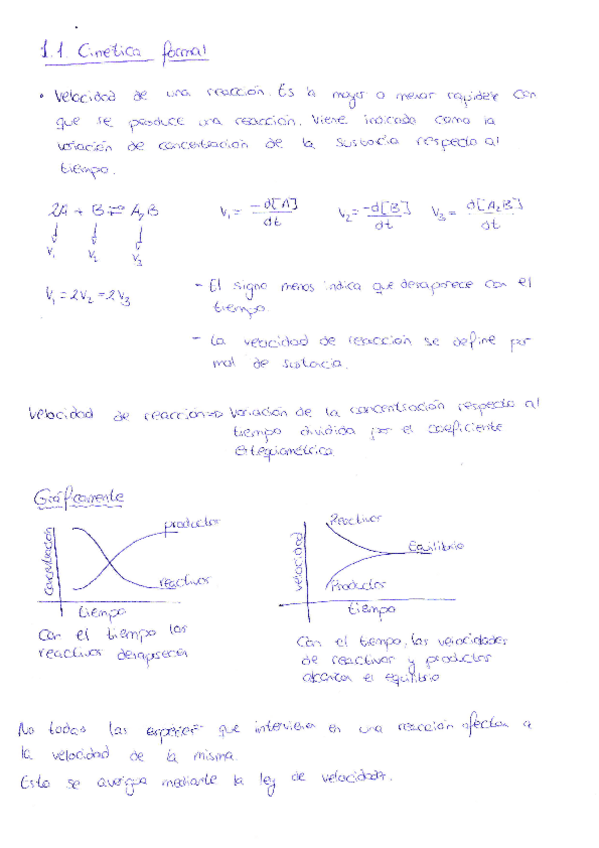 1.1. Cinética formal
• Velocidad de una reacción. Es la mayor o menor rapidez con
que se produce una reacción. Viene indicada como la
variación de concentración de la sustacia respecto al
tiempo.
2A + B ⇌ A₂B   V₁ = -d[A]/dt   V₂ = -d[B]/dt   V₃ = d[A₂B]/dt
↓ ↓ ↓
V₁ V₂ V₃
V₁ = 2V₂ = 2V₃
- El signo menos indica que desaparece con el
tiempo.
- La velocidad de reacción se define por
mol de sustacia.
Velocidad de reacción => Variación de la concentración respecto al
tiempo dividida por el coeficiente
estequiométrico
Gráficamente
concentración
productos
reactivos
tiempo
Con el tiempo los
reactivos desaparecen
velocidad
Reactivos
Equilibrio
Productos
tiempo
Con el tiempo, las velocidades
de reactivos y productos
alcanzan el equilibrio
No todas las especies que intervienen en una reacción afectan a
la velocidad de la misma.
Esto se averigua mediante la ley de velocidades.